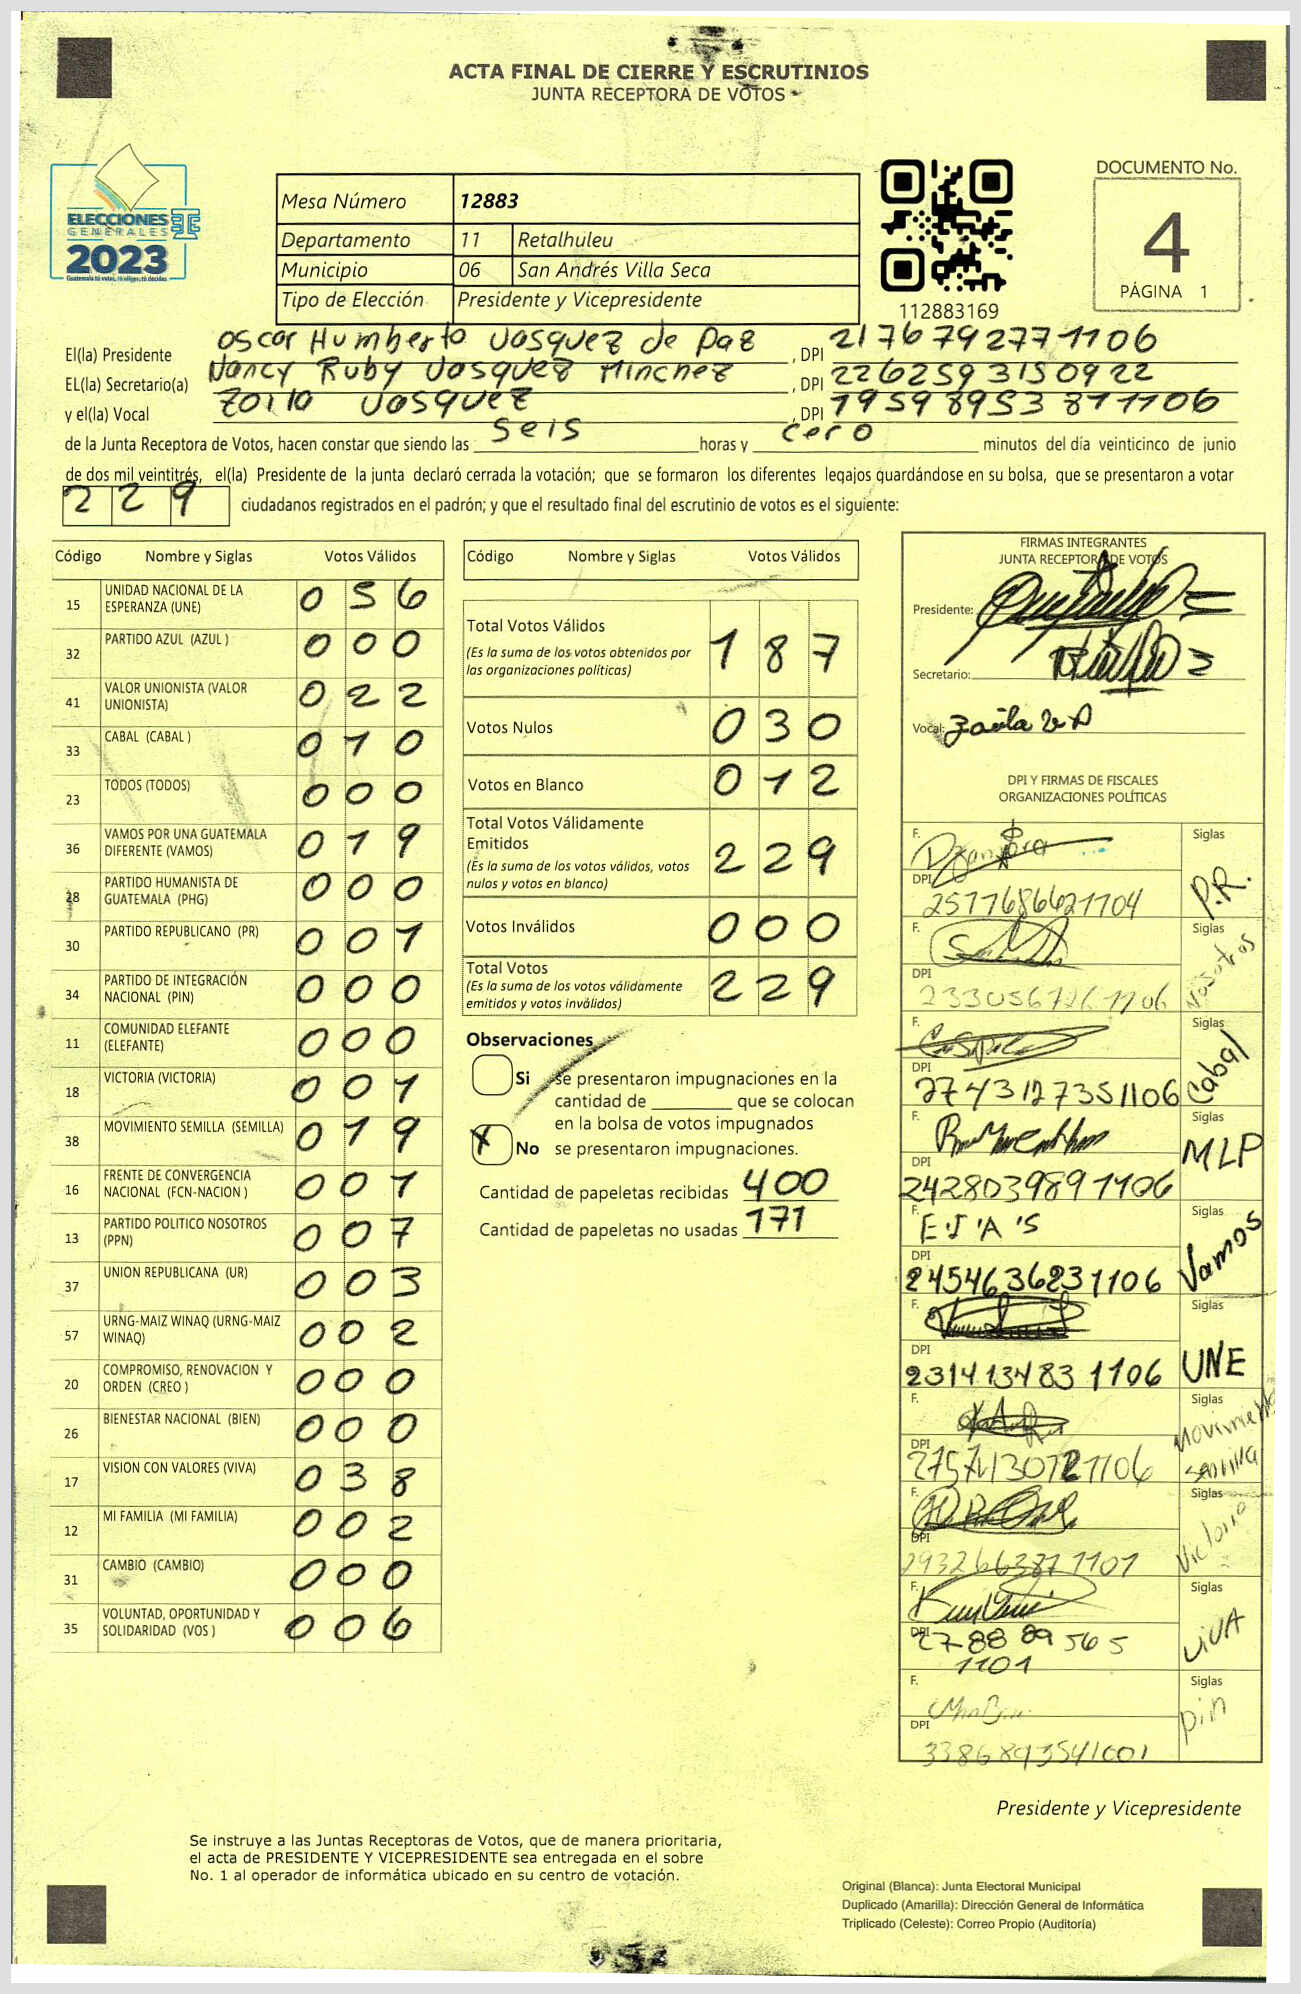 ACTA FINAL DE CIERRE Y ESCRUTINIOS
JUNTA RECEPTORA DE VOTOS
ELECCIONES
GENERALES
2023
Guatemala tú votas, tú eliges, tú decides
Mesa Número 12883
Departamento 11 Retalhuleu
Municipio 06 San Andrés Villa Seca
Tipo de Elección Presidente y Vicepresidente
112883169
DOCUMENTO No.
4
PÁGINA 1
El(la) Presidente Oscar Humberto Vasquez de Paz , DPI 2176792771106
EL(la) Secretario(a) Nancy Ruby Vasquez Minchez , DPI 2262593150922
y el(la) Vocal Zoila Vasquez , DPI 1959895381106
de la Junta Receptora de Votos, hacen constar que siendo las seis horas y cero minutos del día veinticinco de junio
de dos mil veintitrés, el(la) Presidente de la junta declaró cerrada la votación; que se formaron los diferentes legajos guardándose en su bolsa, que se presentaron a votar
229 ciudadanos registrados en el padrón; y que el resultado final del escrutinio de votos es el siguiente:
Código Nombre y Siglas Votos Válidos
15 UNIDAD NACIONAL DE LA ESPERANZA (UNE) 056
32 PARTIDO AZUL (AZUL ) 000
41 VALOR UNIONISTA (VALOR UNIONISTA) 022
33 CABAL (CABAL ) 010
23 TODOS (TODOS) 000
36 VAMOS POR UNA GUATEMALA DIFERENTE (VAMOS) 019
28 PARTIDO HUMANISTA DE GUATEMALA (PHG) 000
30 PARTIDO REPUBLICANO (PR) 001
34 PARTIDO DE INTEGRACIÓN NACIONAL (PIN) 000
11 COMUNIDAD ELEFANTE (ELEFANTE) 000
18 VICTORIA (VICTORIA) 001
38 MOVIMIENTO SEMILLA (SEMILLA) 019
16 FRENTE DE CONVERGENCIA NACIONAL (FCN-NACION ) 001
13 PARTIDO POLITICO NOSOTROS (PPN) 007
37 UNION REPUBLICANA (UR) 003
57 URNG-MAIZ WINAQ (URNG-MAIZ WINAQ) 002
20 COMPROMISO, RENOVACION Y ORDEN (CREO ) 000
26 BIENESTAR NACIONAL (BIEN) 000
17 VISION CON VALORES (VIVA) 038
12 MI FAMILIA (MI FAMILIA) 002
31 CAMBIO (CAMBIO) 000
35 VOLUNTAD, OPORTUNIDAD Y SOLIDARIDAD (VOS ) 006
Código Nombre y Siglas Votos Válidos
Total Votos Válidos 187
(Es la suma de los votos obtenidos por
las organizaciones políticas)
Votos Nulos 030
Votos en Blanco 012
Total Votos Válidamente
Emitidos 229
(Es la suma de los votos válidos, votos
nulos y votos en blanco)
Votos Inválidos 000
Total Votos 229
(Es la suma de los votos válidamente
emitidos y votos inválidos)
Observaciones
Si se presentaron impugnaciones en la
cantidad de ________ que se colocan
en la bolsa de votos impugnados
X No se presentaron impugnaciones.
Cantidad de papeletas recibidas 400
Cantidad de papeletas no usadas 171
FIRMAS INTEGRANTES
JUNTA RECEPTORA DE VOTOS
Presidente:
Secretario:
Vocal: Zoila
DPI Y FIRMAS DE FISCALES
ORGANIZACIONES POLÍTICAS
F. Siglas P.R.
DPI 2577686621104
F. Siglas Nosotros
DPI
F. Siglas Cabal
DPI 2743127351106
F. Siglas MLP
DPI 2428039891106
F. E J 'A 'S Siglas Vamos
DPI 2454636231106
F. Siglas UNE
DPI 2314134831106
F. Siglas Movimiento Semilla
DPI
F. Siglas Victoria
DPI 2932663871101
F. Siglas VIVA
DPI 2788895651101
F. Siglas pin
DPI
Presidente y Vicepresidente
Se instruye a las Juntas Receptoras de Votos, que de manera prioritaria,
el acta de PRESIDENTE Y VICEPRESIDENTE sea entregada en el sobre
No. 1 al operador de informática ubicado en su centro de votación.
Original (Blanca): Junta Electoral Municipal
Duplicado (Amarilla): Dirección General de Informática
Triplicado (Celeste): Correo Propio (Auditoría)